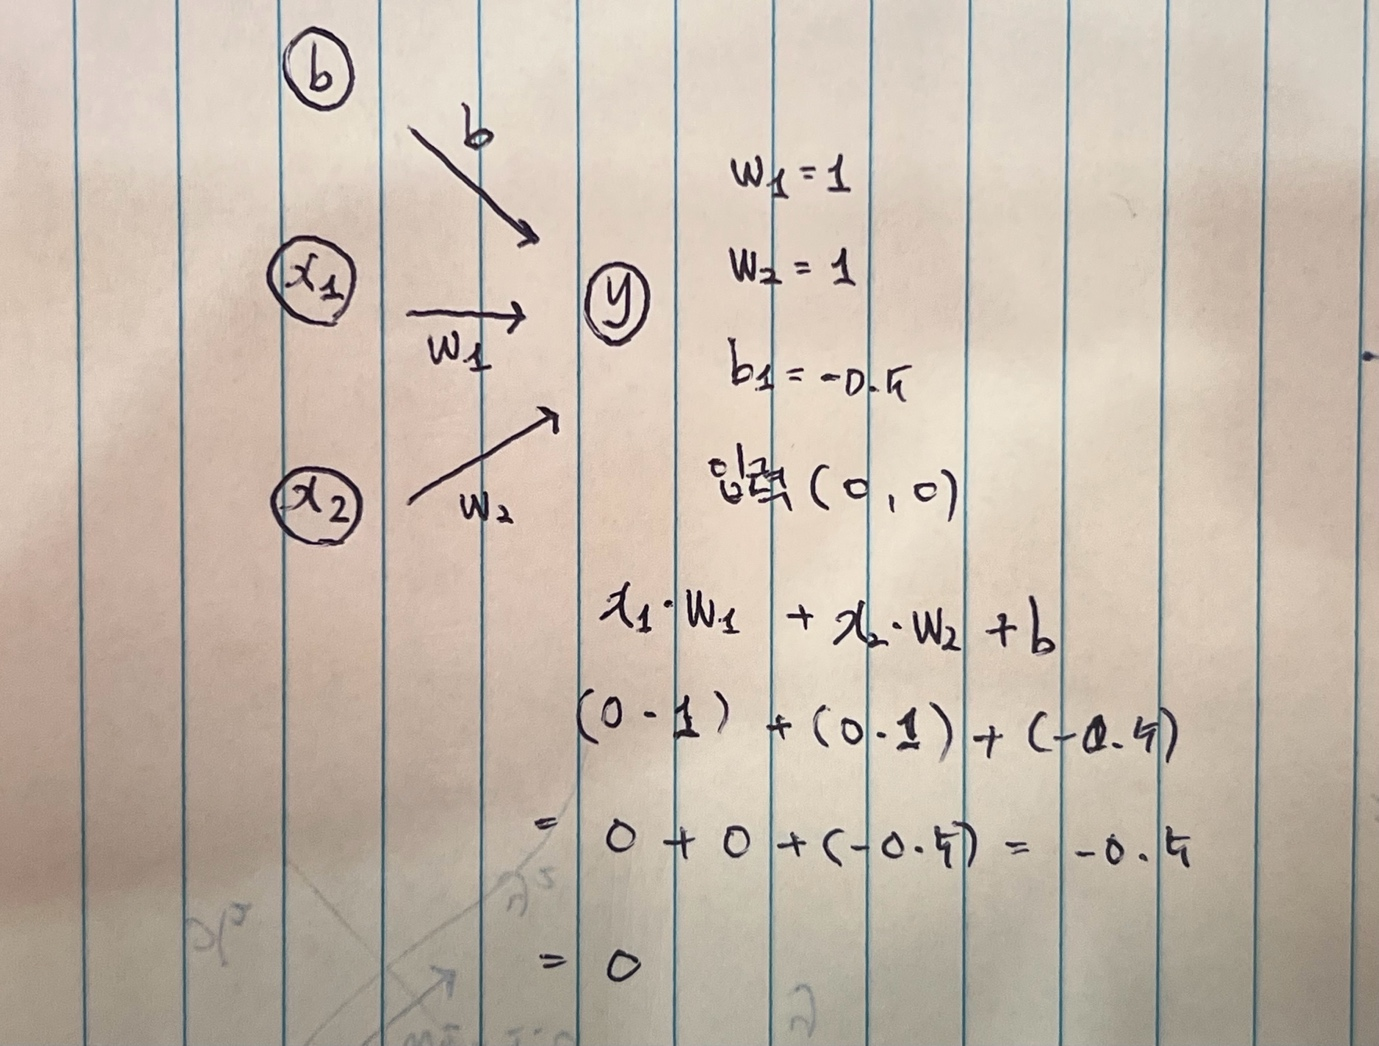 b
b
x₁
w₁
x₂
w₂
y
w₁ = 1
w₂ = 1
b₁ = -0.5
입력 (0, 0)
x₁・w₁ + x₂・w₂ + b
(0 - 1) + (0・1) + (-0.5)
= 0 + 0 + (-0.5) = -0.5
= 0